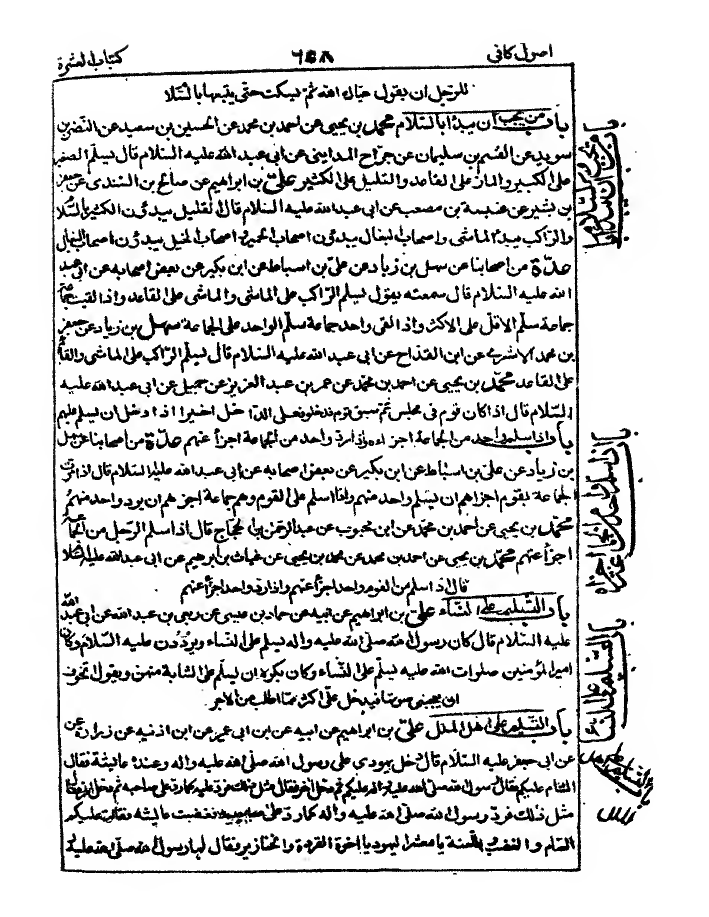 اصول كافى ٦٤٨ كتاب العشرة
للرجل ان يقول حياك الله ثم يسكت حتى يتبعها بالسلام
باب من يجب ان يبدأ بالسلام محمد بن يحيى عن احمد بن محمد عن الحسين بن سعيد عن النضر بن
سويد عن القسم بن سليمان عن جراح المدايني عن ابى عبد الله عليه السلام قال يسلم الصغير
على الكبير والمار على القاعد والقليل على الكثير على بن ابراهيم عن صالح بن السندى عن جعفر
بن بشير عن عنبسة بن مصعب عن ابى عبد الله عليه السلام قال القليل يبدؤن الكثير بالسلام
والراكب يبدأ الماشى واصحاب البغال يبدؤن اصحاب الحمير واصحاب الخيل يبدؤن اصحاب البغال
عدة من اصحابنا عن سهل بن زياد عن على بن اسباط عن ابن بكير عن بعض اصحابه عن ابى عبد
الله عليه السلام قال سمعته يقول يسلم الراكب على الماشى والماشى على القاعد واذا لقيت جماعة
جماعة سلم الاقل على الاكثر واذا لقى واحد جماعة سلم الواحد على الجماعة سهل بن زياد عن جعفر
بن محمد الاشعرى عن ابن القداح عن ابى عبد الله عليه السلام قال يسلم الراكب على الماشى والقائم
على القاعد محمد بن يحيى عن احمد بن محمد عن عمر بن عبد العزيز عن جميل عن ابى عبد الله عليه
السلام قال اذا كان قوم فى مجلس ثم سبق قوم فدخلوا فعلى الداخل اخيرا اذا دخل ان يسلم عليهم
باب اذا سلم واحد من الجماعة اجزأهم واذا رد واحد من الجماعة اجزأ عنهم عدة من اصحابنا عن سهل
بن زياد عن على بن اسباط عن ابن بكير عن بعض اصحابه عن ابى عبد الله عليه السلام قال اذا مرت
الجماعة بقوم اجزأهم ان يسلم واحد منهم واذا سلم على القوم وهم جماعة اجزأهم ان يرد واحد منهم
محمد بن يحيى عن احمد بن محمد عن ابن محبوب عن عبد الرحمن بن الحجاج قال اذا سلم الرجل من الجماعة
اجزأ عنهم محمد بن يحيى عن احمد بن محمد عن محمد بن يحيى عن غياث بن ابرهيم عن ابى عبد الله عليه السلام
قال اذا سلم من القوم واحد اجزأ عنهم واذا رد واحد اجزأ عنهم
باب التسليم على النساء على بن ابراهيم عن ابيه عن حماد بن عيسى عن ربعى بن عبد الله عن ابى عبد الله
عليه السلام قال كان رسول الله صلى الله عليه واله يسلم على النساء ويرددن عليه السلام وكان
امير المؤمنين صلوات الله عليه يسلم على النساء وكان يكره ان يسلم على الشابة منهن ويقول اتخوف
ان يعجبنى صوتها فيدخل على اكثر مما اطلب من الاجر
باب التسليم على اهل الملل على بن ابراهيم عن ابيه عن ابن ابى عمير عن ابن اذينه عن زرارة عن
عن ابى جعفر عليه السلام قال دخل يهودى على رسول الله صلى الله عليه واله وعنده عايشة فقال
السام عليكم فقال رسول الله صلى الله عليه واله عليكم ثم دخل اخر فقال مثل ذلك فرد عليه كما رد على صاحبه ثم دخل اخر فقال
مثل ذلك فرد رسول الله صلى الله عليه واله كما رد على صاحبيه فغضبت عايشه فقالت عليكم
السام والغضب اللعنة يا معشر اليهود يا اخوة القردة والخنازير فقال لها رسول الله صلى الله عليه